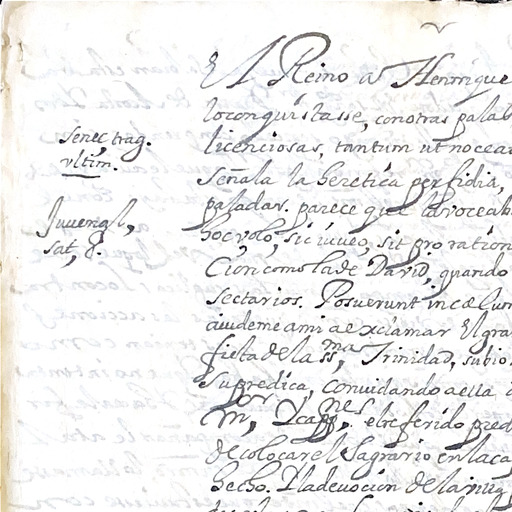 El Reino a Henrrique
loconquistasse, con otras palab
Senec, trag.
licenciosas, tantum ut nocea
vltim.
señala la heretica perfidia,
paladar. parece que
Juvenal,
hoc volo, sic iuveo, sit pro ration
sat, 8.
Cion como la de David, quando
sectarios. Posuerunt in cælum
aiudeme ami a exclamar El gra
fieta de la ss,ma Trinidad, subio
Su predica, convidando a ella
elreferido pred
de colocar el Sagrario en la ca
hecho. I la devocion de la